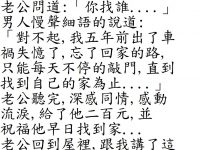 老公問道:「你找誰....」
男人慢聲細語的說道:
「對不起,我五年前出了車
禍失憶了,忘了回家的路,
只能每天不停的敲門,直到
找到自己的家為止....」
老公聽完,深感同情,感動
流淚,給了他二百元,並
祝福他早日找到家...
老公回到屋裡,跟我講了這